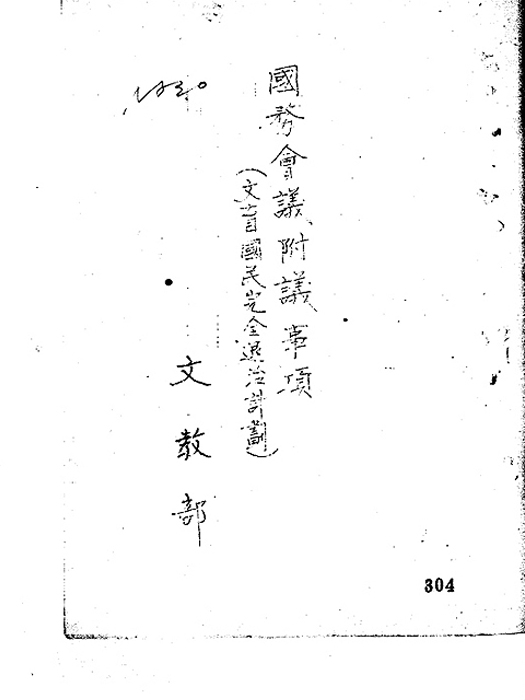 國務會議附議事項
(文盲國民完全退治計劃)
文敎部
304